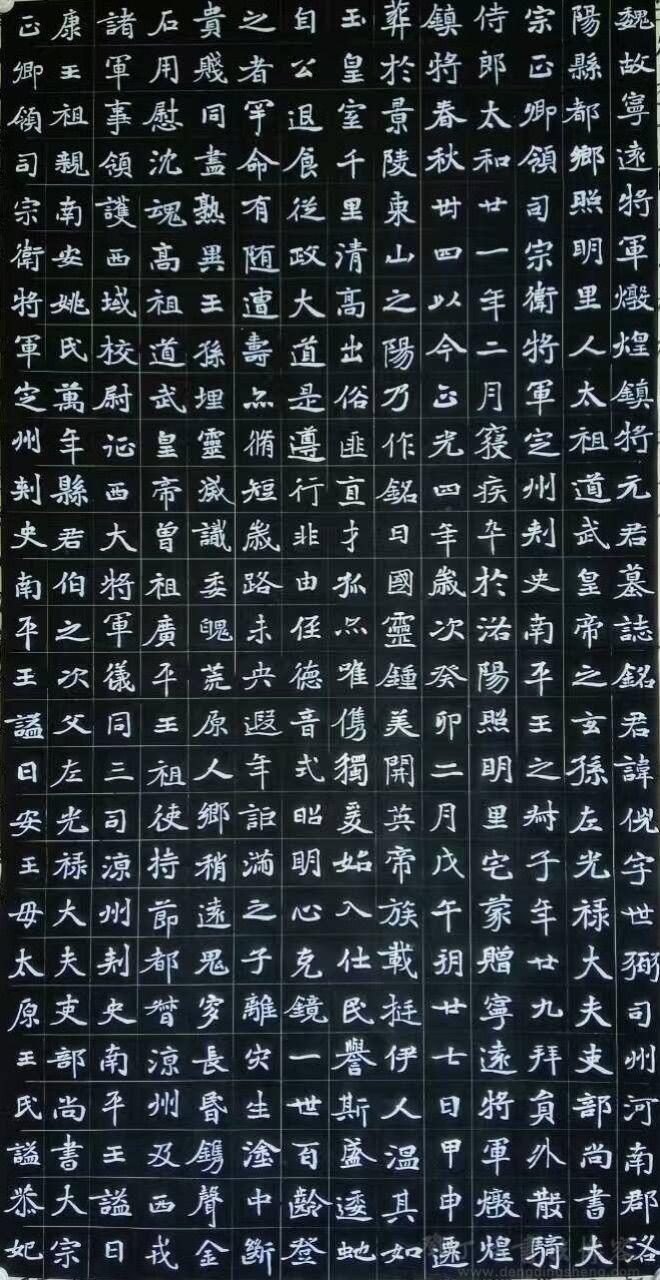 魏故寧遠將軍燉煌鎮將元君墓誌銘君諱倪字世弼司州河南郡洛
陽縣都鄉照明里人太祖道武皇帝之玄孫左光祿大夫吏部尚書大
宗正卿領司宗衛將軍定州刺史南平王之叔子年廿九拜員外散騎
侍郎太和廿一年二月寑疾卒於洛陽照明里宅蒙贈寧遠將軍燉煌
鎮將春秋卌四以今正光四年歲次癸卯二月戊午玥廿七日甲申遷
葬於景陵東山之陽乃作銘曰國靈鍾美開英帝族載挺伊人溫其如
玉皇室千里清高出俗匪直才孤亦唯儁獨爰始入仕民譽斯盛逶虵
自公退食從政大道是遵行非由侄德音式昭明心克鏡一世百齡登
之者罕命有随遭壽亦脩短歲路未央遐年詎滿之子離灾生塗中斷
貴賤同盡熟異王孫埋靈滅識委䰟荒原人鄉稍遠鬼穸長昏鐫聲金
石用慰沈魂高祖道武皇帝曾祖廣平王祖使持節都督涼州及西戎
諸軍事領護西域校尉征西大將軍儀同三司涼州刺史南平王謚曰
康王祖親南安姚氏萬年縣君伯之次父左光祿大夫吏部尚書大宗
正卿領司宗衛將軍定州刺史南平王謚曰安王母太原王氏謚恭妃
www.dengdingsheng.com